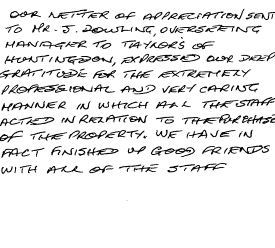 OUR LETTER OF APPRECIATION SENT
TO MR. J. DOWLING, OVERSEEING
MANAGER TO TAYLORS OF
HUNTINGDON, EXPRESSED OUR DEEP
GRATITUDE FOR THE EXTREMELY
PROFESSIONAL AND VERY CARING
MANNER IN WHICH ALL THE STAFF
ACTED IN RELATION TO THE PURCHASE
OF THE PROPERTY. WE HAVE IN
FACT FINISHED UP GOOD FRIENDS
WITH ALL OF THE STAFF